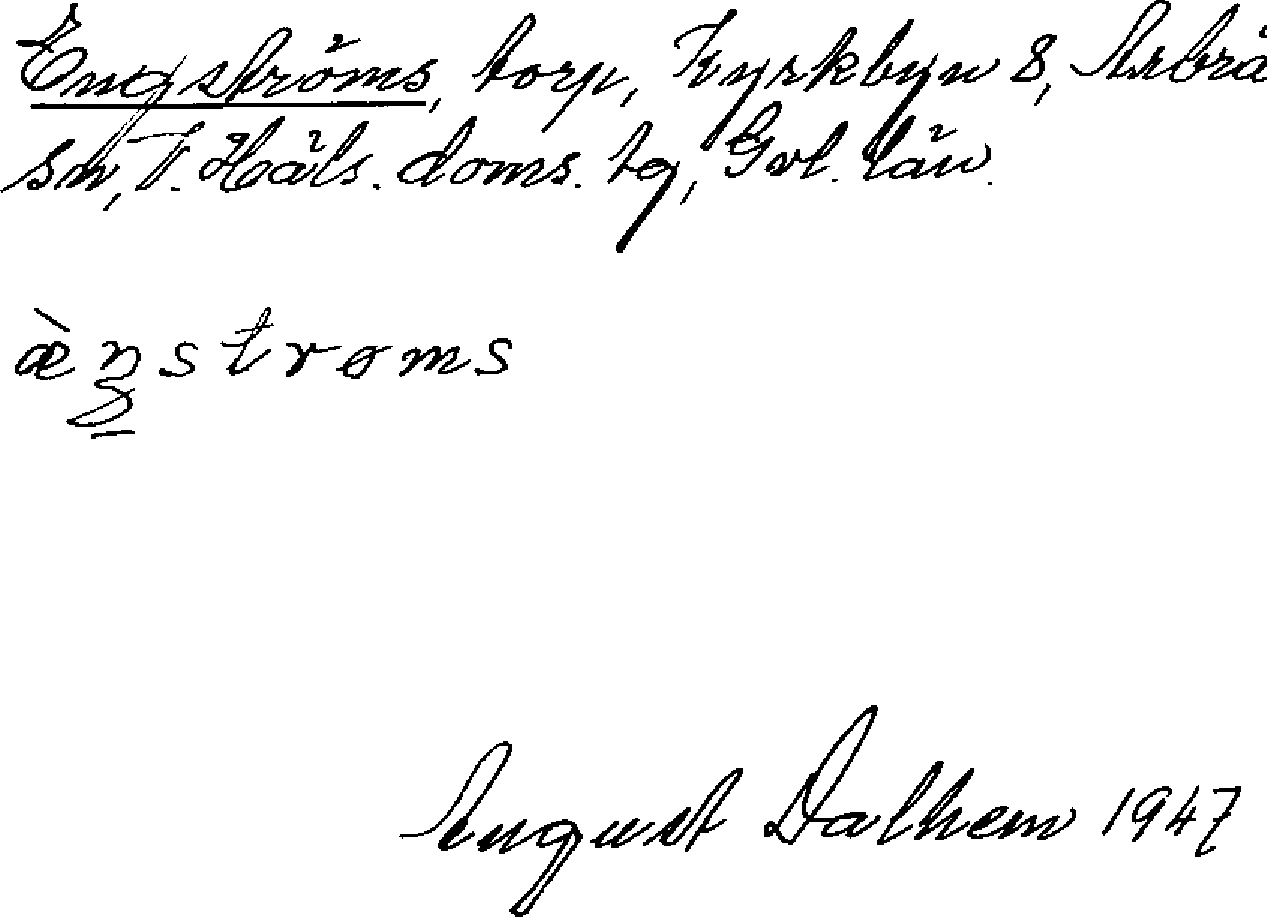 Engströms, torp, Kyrkbyn 8, Arbrå
sn, V. Häls. doms. tg, Gvl. län.
æ̀ŋstrøms
August Dalhem 1947